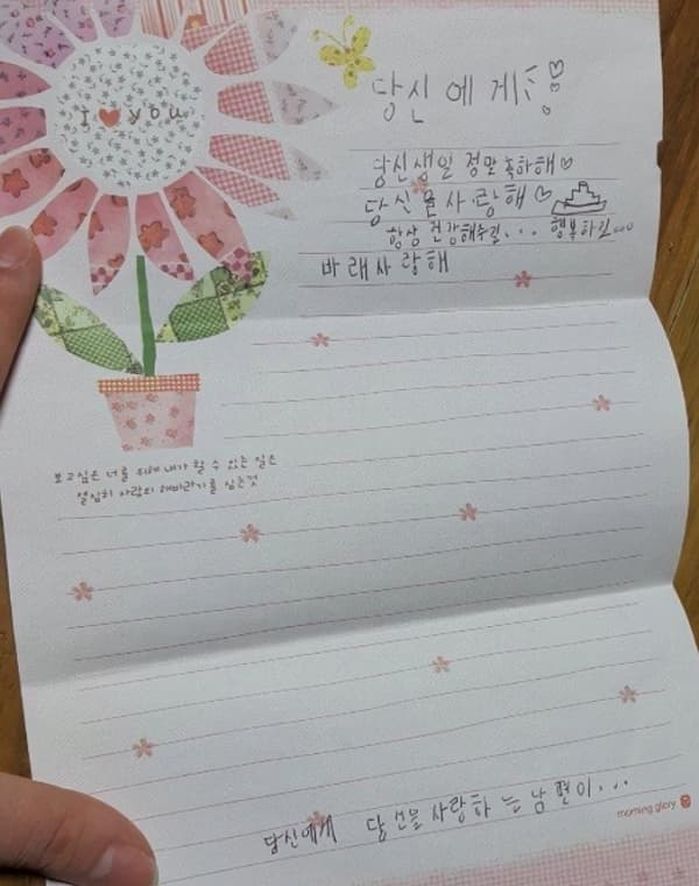 I ♥ you
당신에게 ♡
당신생일 정말 축하해♡
당신을 사랑해♡
항상 건강해주길... 행복하길...
바래사랑해
보고싶은 너를 위해 내가 할 수 있는 일은
열심히 사랑의 해바라기를 심는것
당신에게 당신을 사랑하는 남편이...
morning glory